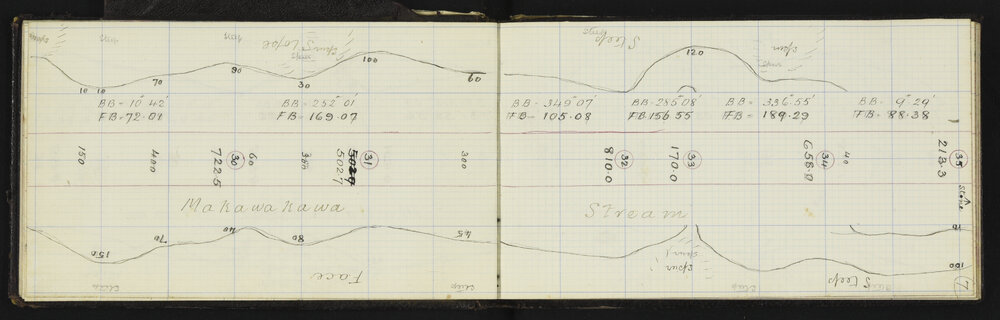 spur
Slope
spur
Steep
spurs
spur
spur
100
120
10 10
70
90
30
60
BB = 10° 42'
FB = 72.01
BB = 252° 01'
FB = 169.07
BB = 349° 07'
FB = 105.08
BB = 285° 08'
FB 156 55
BB = 336° 55'
FB = 189.29
BB = 9° 29'
FB = 88.38
150
400
722.5
30
60
300
502.7
31
300
810.0
32
170.0
33
658.0
34
40
213.3
35
Stone
Makawakawa
Stream
150
70
40
80
45
10
100
Face
spur
spur
Steep
7